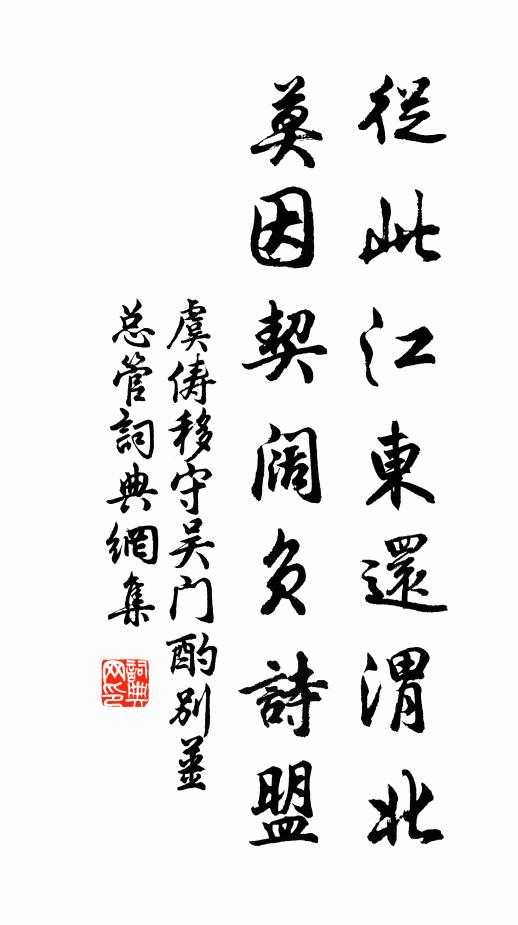 從此江東還渭北
莫因契阔負詩盟
虞俦移守吴门酌别薑
总管詞典網集
詞典
网